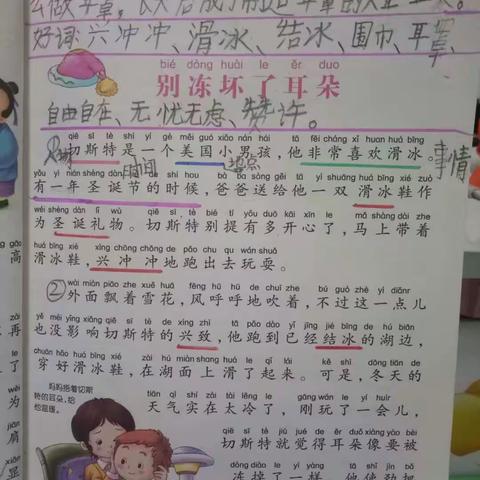 么做耳罩,
好词:六冲冲、滑冰、结冰、围巾、耳罩、
bié dòng huài le ěr duo
别冻坏了耳朵
自由自在、无忧无虑、赞许。
qiē sī tè shì yí gè měi guó xiǎo nán hái tā fēi cháng xǐ huan huá bīng
切斯特是一个美国小男孩,他非常喜欢滑冰。
时间 地点 事情
yǒu yì nián shèng dàn jié de shí hou bà ba sòng gěi tā yì shuāng huá bīng xié zuò
有一年圣诞节的时候,爸爸送给他一双滑冰鞋作
wéi shèng dàn lǐ wù qiē sī tè bié tí yǒu duō kāi xīn le mǎ shàng dài zhe
为圣诞礼物。切斯特别提有多开心了,马上带着
huá bīng xié xìng chōng chōng de pǎo chu qu wán shuǎ
滑冰鞋,兴冲冲地跑出去玩耍。
wài miàn piāo zhe xuě huā fēng hū hū de chuī zhe bú guò zhè yì diǎnr
②外面飘着雪花,风呼呼地吹着,不过这一点儿
yě méi yǐng xiǎng qiē sī tè de xìng zhì tā pǎo dào yǐ jīng jié bīng de hú biān
也没影响切斯特的兴致,他跑到已经结冰的湖边,
chuān hǎo huá bīng xié zài hú miàn shang huá le qǐ lái kě shì dōng tiān de
穿好滑冰鞋,在湖面上滑了起来。可是,冬天的
妈妈捂着切斯
特的耳朵,给
他温暖。
tiān qì shí zài tài lěng le gāng wán le yí huìr
天气实在太冷了,刚玩了一会儿,
qiē sī tè jiù jué de ěr duo xiàng yào bèi
切斯特就觉得耳朵像要被
dòng diào le yí yàng tā shǐ jìn bǎ
冻掉了一样。他使劲把